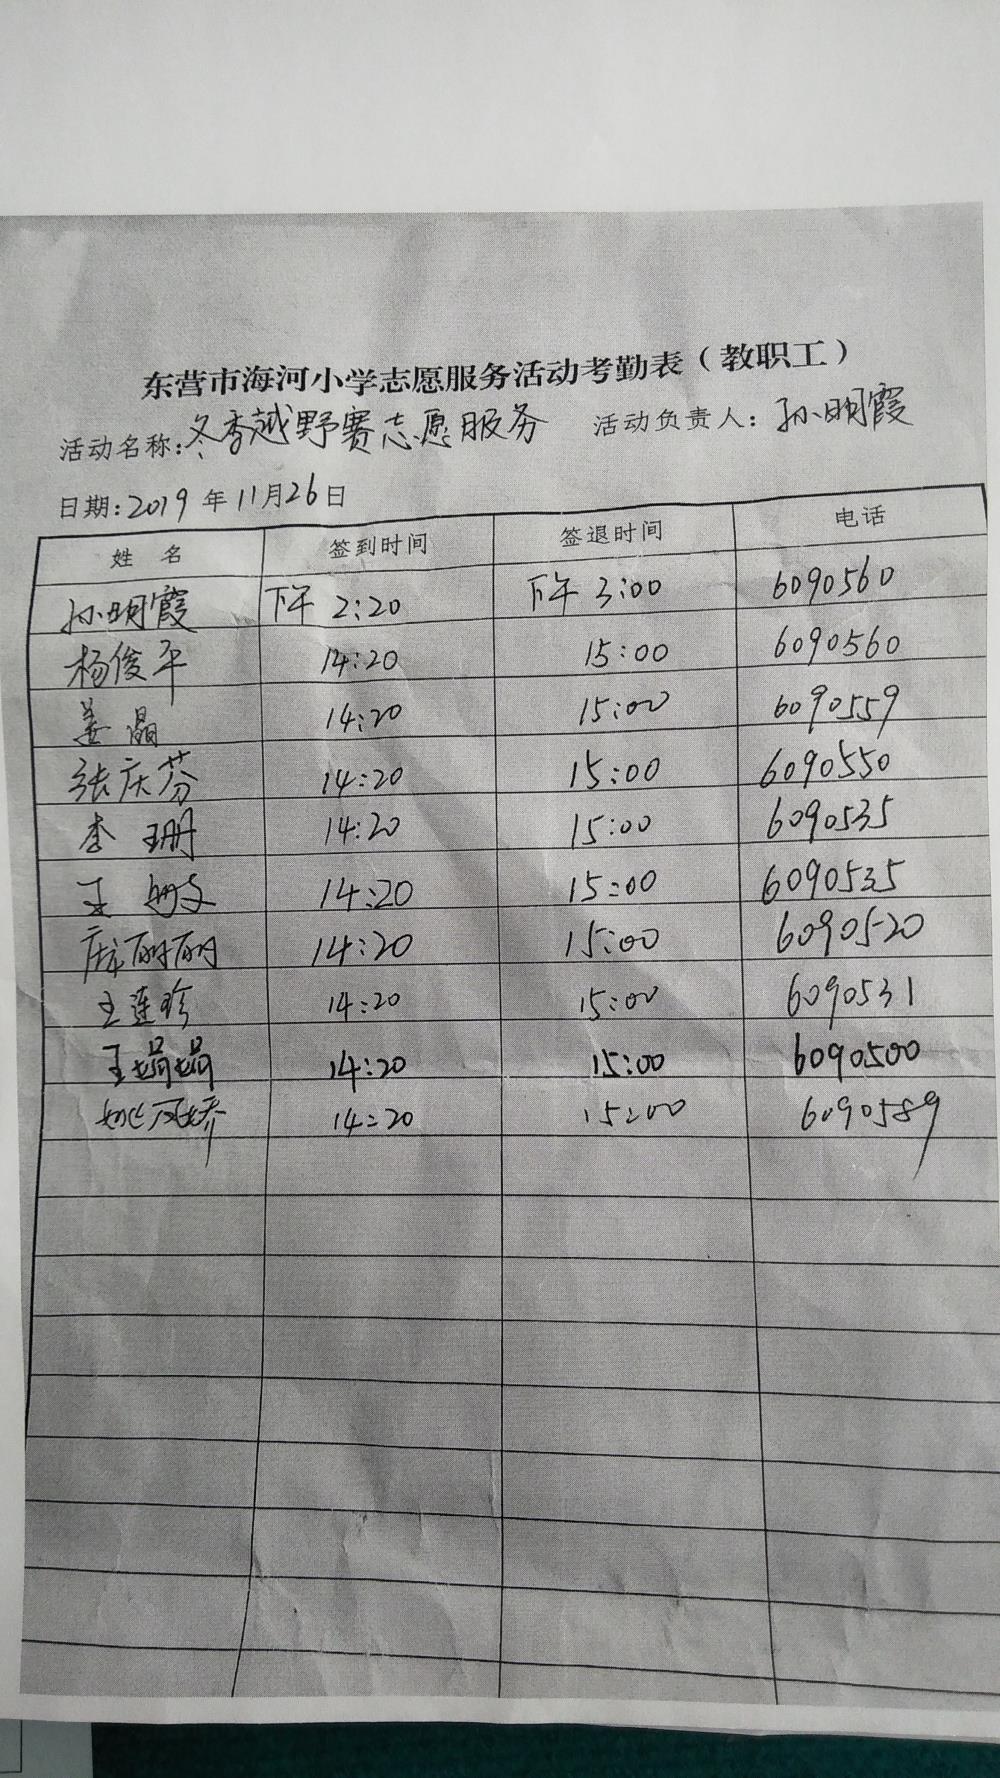 东营市海河小学志愿服务活动考勤表（教职工）
活动名称：冬季越野赛志愿服务 活动负责人：孙明霞
日期：2019年11月26日
姓 名 签到时间 签退时间 电话
孙明霞 下午 2:20 下午 3:00 6090560
杨俊平 14:20 15:00 6090560
姜晶 14:20 15:00 6090559
张庆芬 14:20 15:00 6090550
李珊 14:20 15:00 6090535
王 14:20 15:00 6090535
丽丽 14:20 15:00 6090520
王莲珍 14:20 15:00 6090531
王娟娟 14:20 15:00 6090500
14:20 15:00 6090589